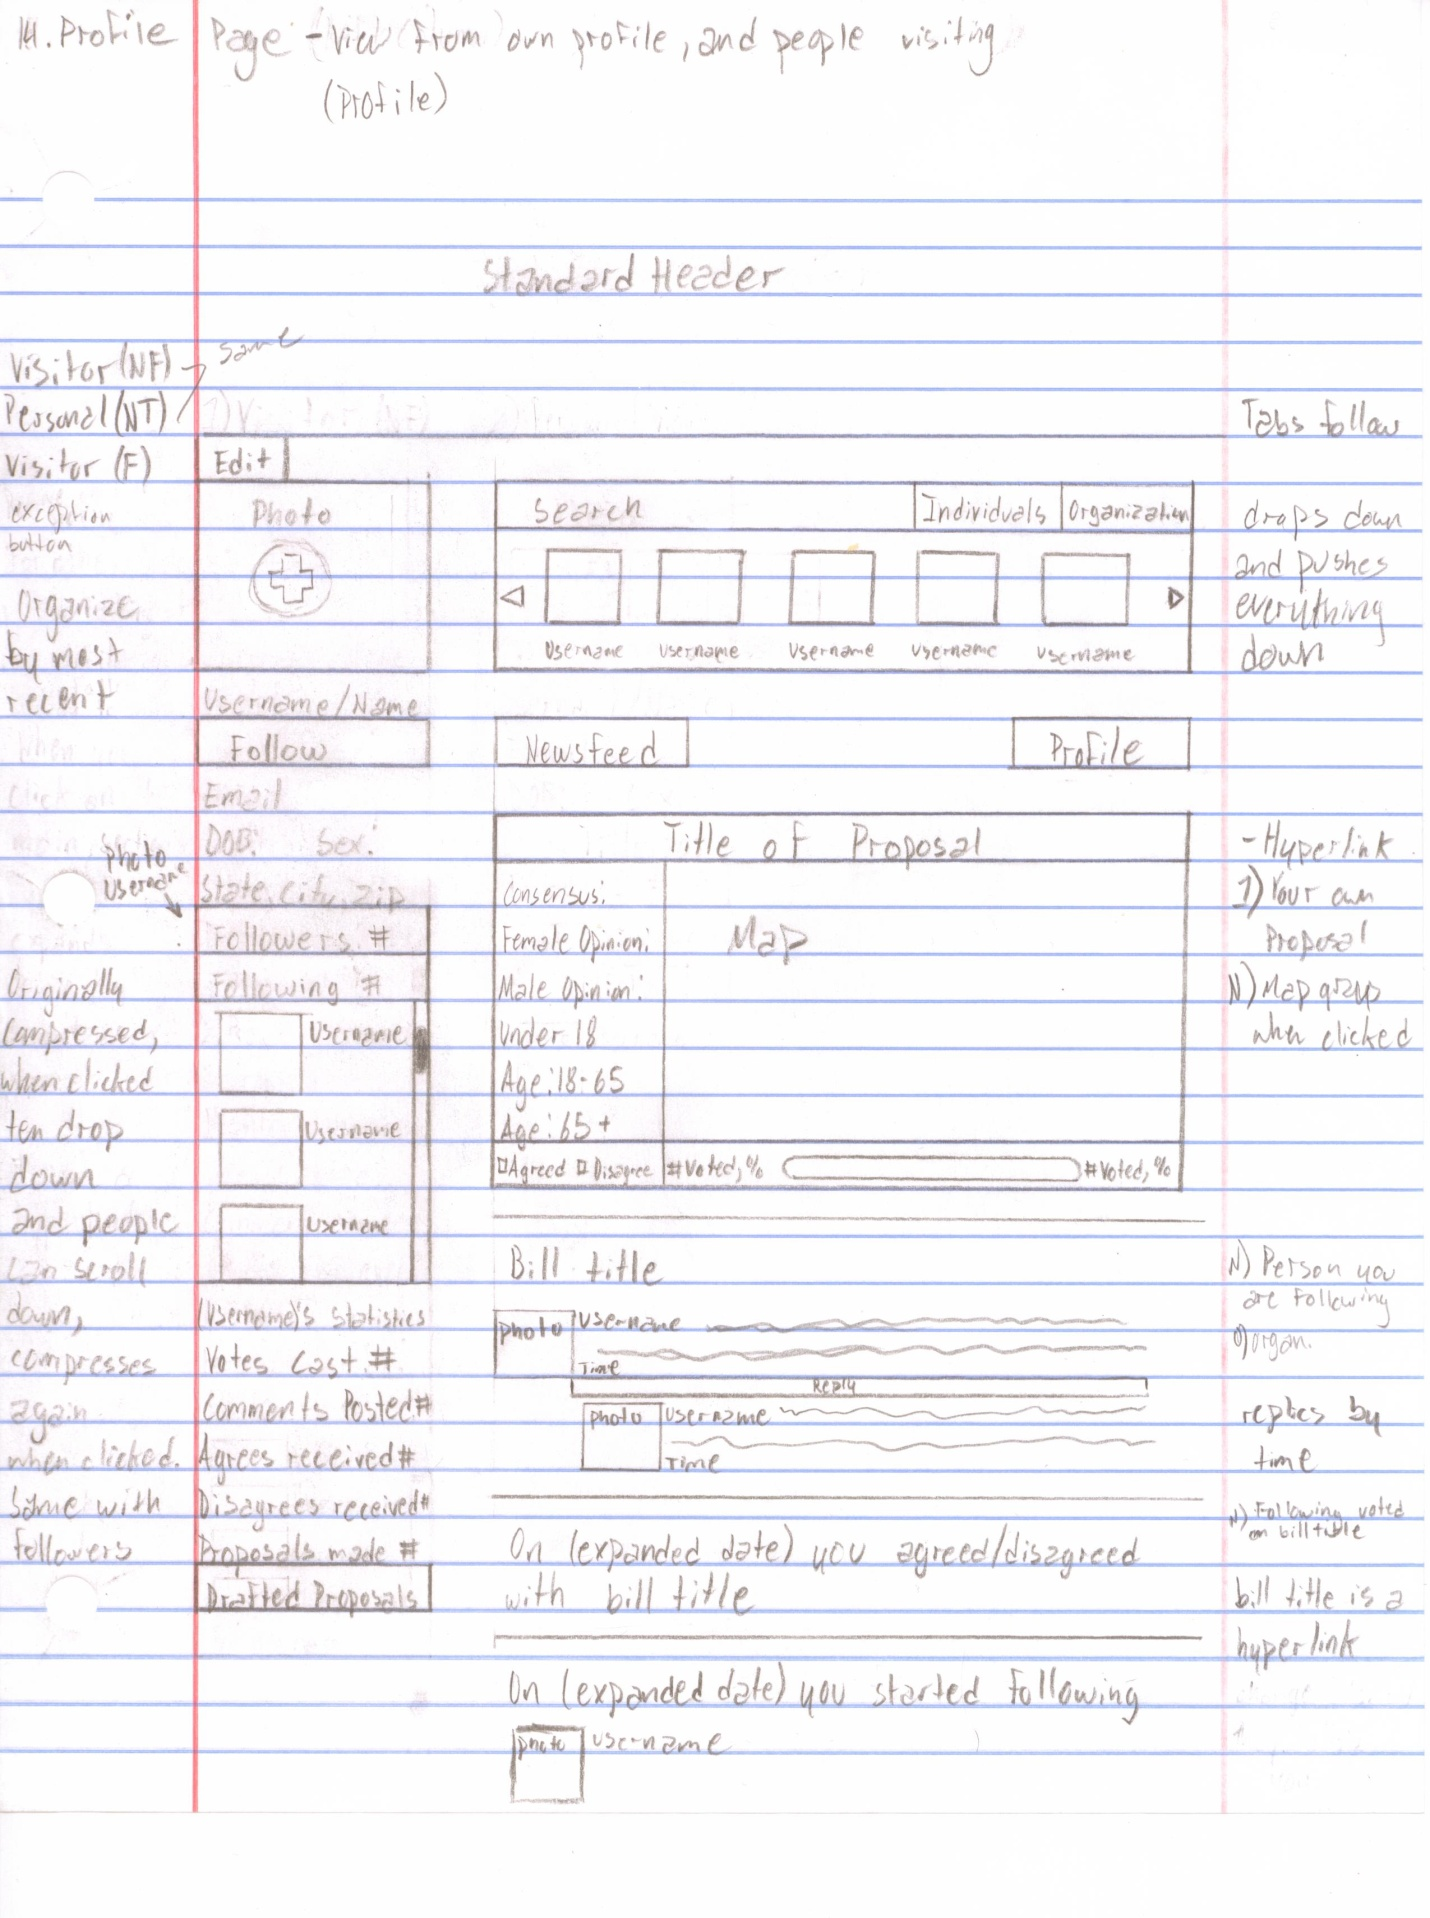 14. Profile Page - View from own profile, and people visiting
(Profile)
Standard Header
Visitor (NF)
same
Personal (NT)
Visitor (F)
exception
button
Organize
by most
recent
when
click on
photo
username
Originally
compressed,
when clicked
ten drop
down
and people
can scroll
down,
compresses
again
when clicked.
Same with
followers
Edit
Photo
Username/Name
Follow
Email
DOB: Sex:
State, City, Zip
Followers #
Following #
Username
Username
Username
(Username)'s statistics
Votes Cast #
Comments Posted #
Agrees received #
Disagrees received #
Proposals made #
Drafted Proposals
Search Individuals Organization
Username Username Username Username Username
Newsfeed Profile
Title of Proposal
Consensus:
Female Opinion:
Male Opinion:
Under 18
Age: 18-65
Age: 65+
Map
Agreed Disagree #Voted, % #Voted, %
Bill title
photo Username
Time
Reply
photo Username
Time
On (expanded date) you agreed/disagreed
with bill title
On (expanded date) you started following
photo username
Tabs follow
drops down
and pushes
everything
down
- Hyperlink
1) Your own
Proposal
N) Map group
when clicked
N) Person you
are following
organ.
replies by
time
N) Following voted
on bill title
bill title is a
hyperlink